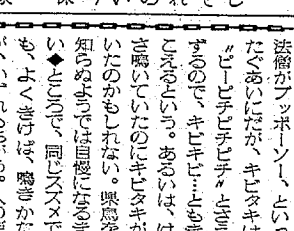 法僧がブッポーソー、といっ
たぐあいにだが、キビタキは
〝ピーピチピチピチ〟とさえ
ずるので、キビキビ…ともき
こえるという。あるいは、け
さ鳴いていたのにキビタキが
いたのかもしれない。県鳥を
知らぬようでは自慢になるま
い◆ところで、同じスズメで
も、よくきけば、鳴きかた